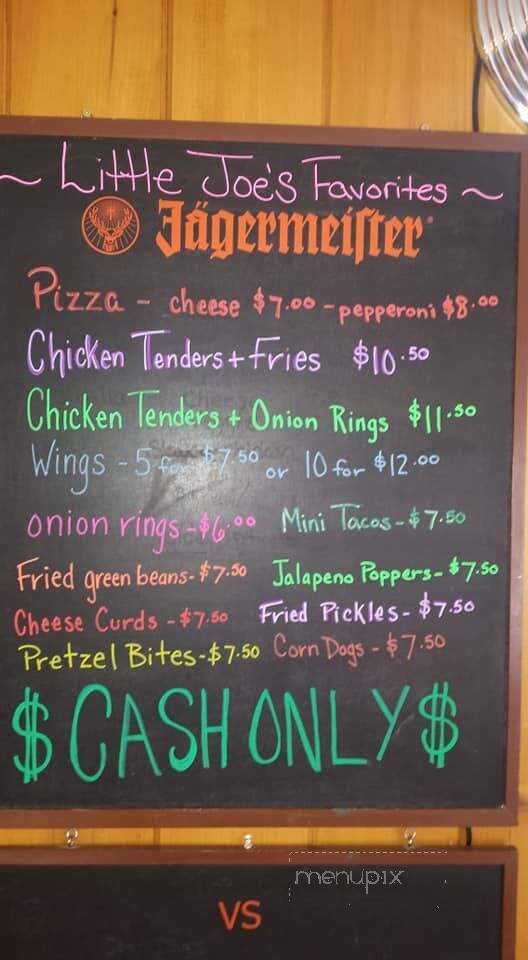 ~ Little Joe's Favorites ~
Jägermeister
Pizza - cheese $7.00 - pepperoni $8.00
Chicken Tenders + Fries $10.50
Chicken Tenders + Onion Rings $11.50
Wings - 5 for $7.50 or 10 for $12.00
onion rings - $6.00 Mini Tacos - $7.50
Fried green beans - $7.50 Jalapeno Poppers - $7.50
Cheese Curds - $7.50 Fried Pickles - $7.50
Pretzel Bites - $7.50 Corn Dogs - $7.50
$ CASH ONLY $
menupix
VS